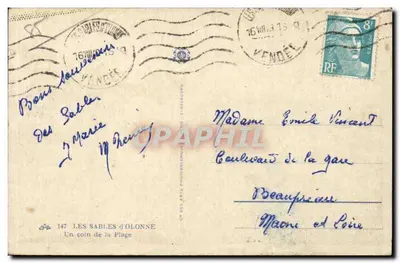 LES SABLES D'OLONNE
VENDEE
VENDEE
8F
RF
Bons souvenirs
des Sables
Marie
Madame Emile Vincent
Boulevard de la gare
Beaupréau
Maine et Loire
CARTOPHIL
147 LES SABLES d'OLONNE
Un coin de la Plage